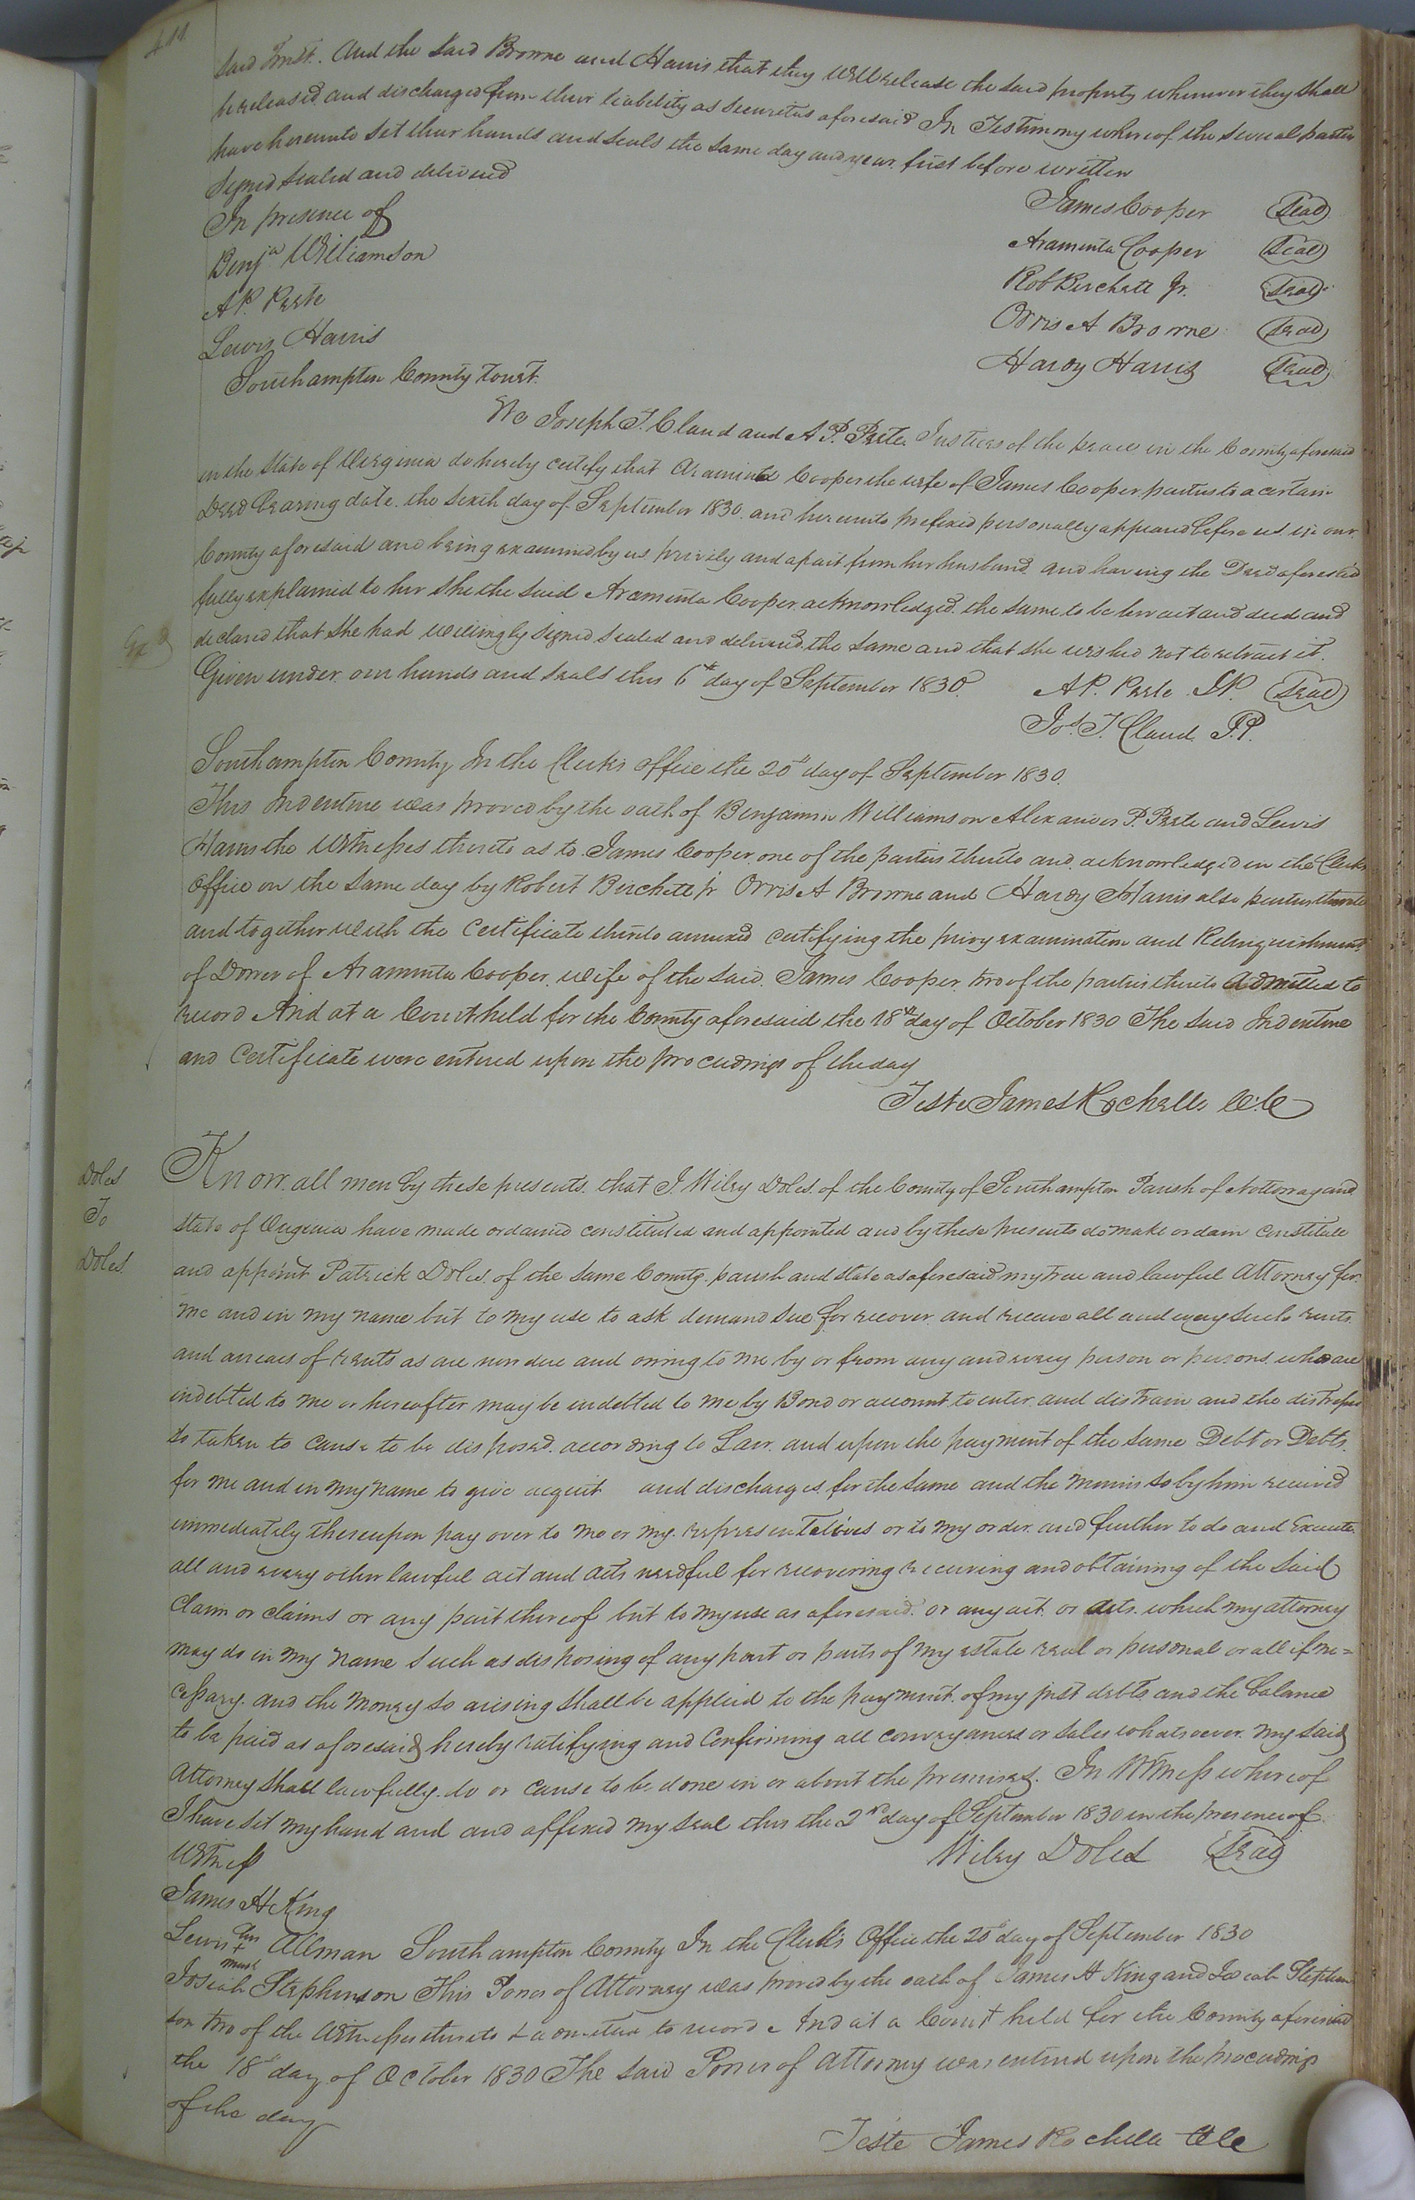 said Trust. And the said Browne and Harris that they will release the said property whenever they shall
be released and discharged from their liability as securities aforesaid In Testimony whereof the several parties
have hereunto set their hands and seals the same day and year first before written
Signed sealed and delivered
In presence of
James Cooper (Seal)
Benja Williamson
Araminta Cooper (Seal)
A P. Peete
Rob Birchett Jr. (Seal)
Lewis Harris
Orris A Browne (Seal)
Southampton County Court.
Hardy Harris (Seal)
We Joseph T. Claud and A. P. Peete Justices of the peace in the County aforesaid
in the State of Virginia do hereby certify that Araminta Cooper the wife of James Cooper parties to a certain
Deed bearing date the sixth day of September 1830 and hereunto prefixed personally appeared before us in our
County aforesaid and being examined by us privily and apart from her husband and having the Deed aforesaid
fully explained to her she the said Araminta Cooper acknowledged the same to be her act and deed and
declared that she had willingly signed sealed and delivered the same and that she wished not to retract it.
Given under our hands and seals this 6th day of September 1830. A P. Peete J.P. (Seal)
Jos. T. Claud J.P.
Southampton County In the Clerks office the 20th day of September 1830.
This Indenture was proved by the oath of Benjamin Williamson Alexander P. Peete and Lewis
Harris the Witnesses thereto as to James Cooper one of the parties thereto and acknowledged in the Clerks
Office on the same day by Robert Birchett jr Orris A Browne and Hardy Harris also parties thereto
and together with the certificate thereto annexed certifying the privy examination and Relinquishment
of Dower of Araminta Cooper wife of the said James Cooper two of the parties thereto admitted to
record And at a Court held for the County aforesaid the 18th day of October 1830 The said Indenture
and Certificate were entered upon the proceedings of the day
Teste James Rochelle C.C
Doles
To
Doles
Know all men by these presents that I Wiley Doles of the County of Southampton Parish of Nottoway and
state of Virginia have made ordained constituted and appointed and by these presents do make ordain constitute
and appoint Patrick Doles of the same County parish and state as aforesaid my true and lawful Attorney for
me and in my name but to my use to ask demand sue for recover and receive all and every such rents
and arrears of rents as are now due and owing to me by or from any and every person or persons who are
indebted to me or hereafter may be indebted to me by Bond or account to enter and distrain and the distresses
so taken to cause to be disposed according to Law and upon the payment of the same Debt or Debts
for me and in my name to give acquit and discharges for the same and the monies so by him received
immediately thereupon pay over to me or my representatives or to my order and further to do and Execute
all and every other lawful act and acts needful for recovering receiving and obtaining of the said
Claim or claims or any part thereof but to my use as aforesaid or any act or acts which my attorney
may do in my name such as disposing of any part or parts of my estate real or personal or all if ne=
cessary and the money so arising shall be applied to the payment of my just debts and the balance
to be paid as aforesaid hereby ratifying and Confirming all conveyances or sales whatsoever my said
Attorney shall lawfully do or cause to be done in or about the premises. In Witness whereof
I have set my hand and and affixed my seal this the 2nd day of September 1830 in the presence of
Witness
Wiley Doles (Seal)
James H King
Lewis his + mark Allman
Southampton County In the Clerk's Office the 20th day of September 1830
Josiah Stephenson This Power of Attorney was proved by the oath of James H King and Josiah Stephen
son two of the Witnesses thereto & admitted to record And at a Court held for the County aforesaid
the 18th day of October 1830 The said Power of Attorney was entered upon the proceedings
of the day
Teste James Rochelle Clk